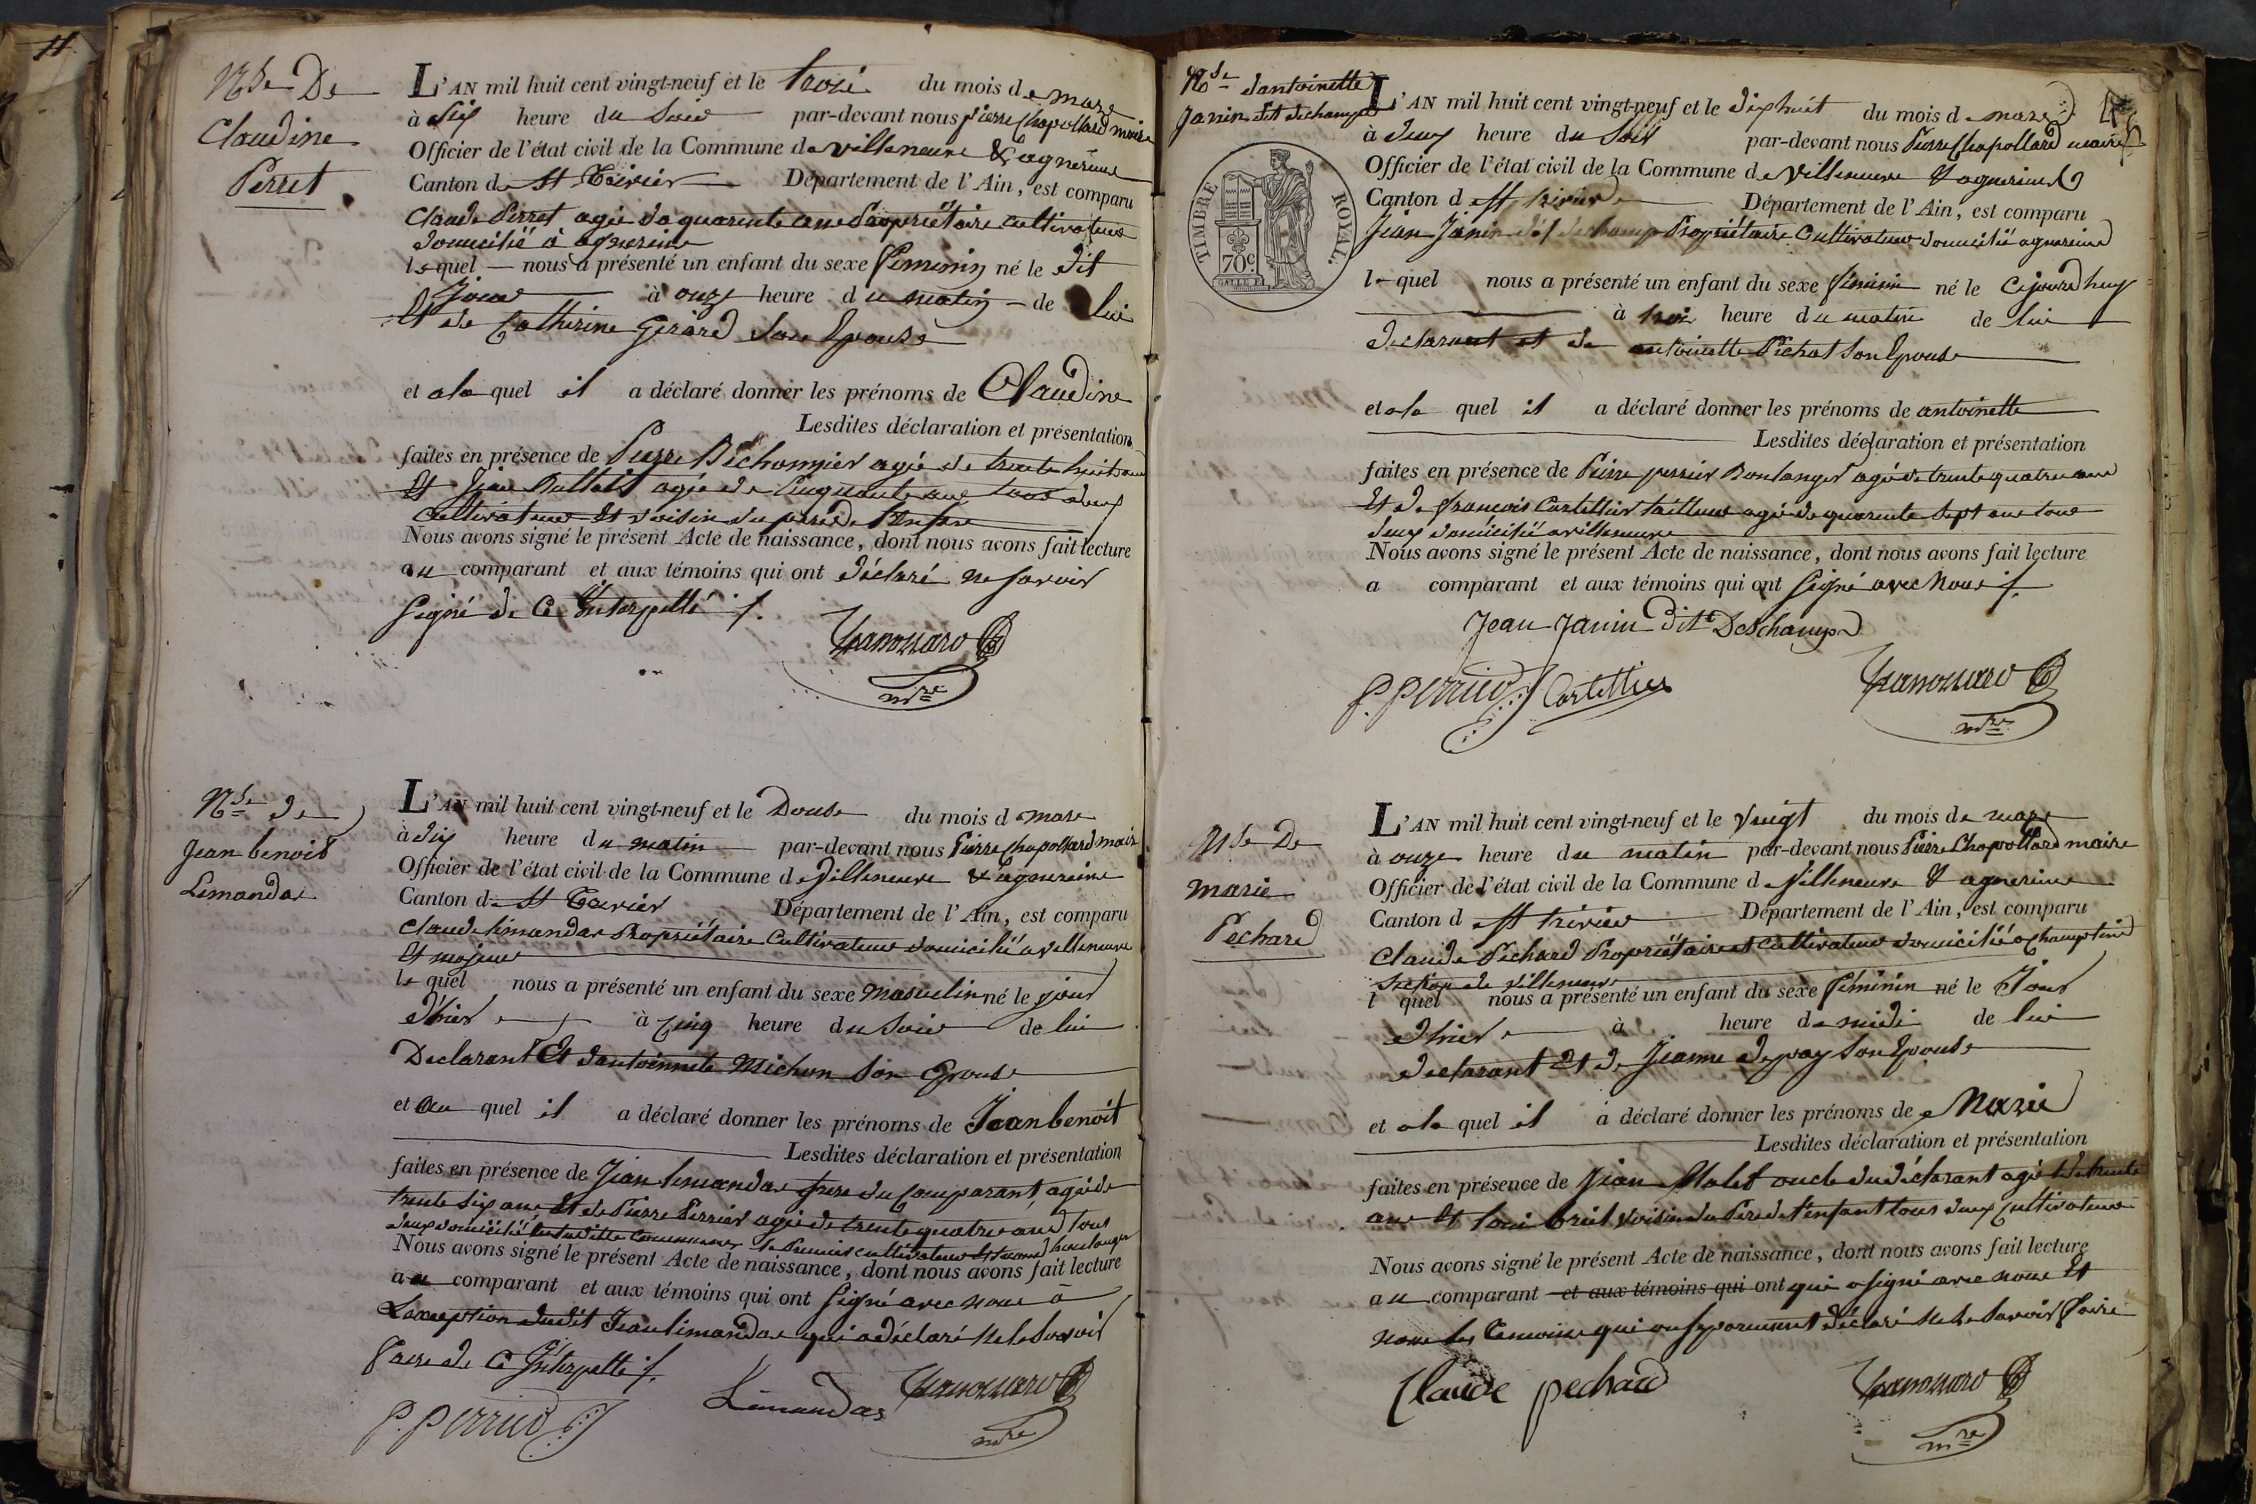 11
Nce De
Claudine
Perret
L'AN mil huit cent vingt-neuf et le trois du mois de mars
à Six heure du Soir par-devant nous Pierre Chapollard maire
Officier de l'état civil de la Commune de villeneuve & agnereins
Canton de St Trivier Département de l'Ain, est comparu
Claude Perret agé de quarente ans Propriétaire cultivateur
domicilié à agnereins
lequel nous a présenté un enfant du sexe feminin né le dit
Jour à onze heure du matin de lui
Et de Catherine Girard Son Epouse
et a la quel il a déclaré donner les prénoms de Claudine
Lesdites déclaration et présentation
faites en présence de Pierre Bichonnier agé de trente huit ans
Et Jean agé de Cinquante ans tous deux
Cultivateur Et voisin du pere de l'Enfant
Nous avons signé le présent Acte de naissance, dont nous avons fait lecture
au comparant et aux témoins qui ont déclaré ne Savoir
Signé de Ce Interpellé ./.
mre
Nce de
Jean benoit
Limandas
L'AN mil huit cent vingt-neuf et le Douse du mois d mars
à dix heure du matin par-devant nous Pierre Chapollard maire
Officier de l'état civil de la Commune de Villeneuve & agnereins
Canton de St Trivier Département de l'Ain, est comparu
Claude limandas Propriétaire Cultivateur domicilié a villeneuve
Et majeur
le quel nous a présenté un enfant du sexe masculin né le jour
d'hier à Cinq heure du Soir de lui
Declarant Et d'antoinnete Michon Son Epouse
et au quel il a déclaré donner les prénoms de Jean benoit
Lesdites déclaration et présentation
faites en présence de Jean limandas frere du Comparant, agé de
trente Six ans Et de Pierre Perrier agé de trente quatre ans tous
deux domicilié Susdite Commune le Premier cultivateur Et Second boulanger
Nous avons signé le présent Acte de naissance, dont nous avons fait lecture
au comparant et aux témoins qui ont Signé avec nous à
L'exception dudit Jean limandas qui a déclaré ne le Savoir
faire de Ce Interpellé ./.
P. Perrier
Limandas
mre
Nce d'antoinette
Janin dit dechamps
L'AN mil huit cent vingt-neuf et le dix huit du mois d mars
à deux heure du Soir par-devant nous Pierre Chapollard maire
Officier de l'état civil de la Commune de Villeneuve & agnereins
Canton d St trivier Département de l'Ain, est comparu
TIMBRE ROYAL.
70c
Jean Janin dit dechamp Propriétaire Cultivateur domicilié agnereins
le quel nous a présenté un enfant du sexe féminin né le Cejourd'huy
à heure du matin de lui
déclarant et de antoinette Pichat Son Epouse
et a la quel il a déclaré donner les prénoms de antoinette
Lesdites déclaration et présentation
faites en présence de Pierre perrier Boulanger agé de trente quatre ans
Et de francois Cartellier tailleur agé de quarente Sept ans tous
deux domicilié a villeneuve
Nous avons signé le présent Acte de naissance, dont nous avons fait lecture
a comparant et aux témoins qui ont Signé avec Nous ./.
Jean Janin Dit Deschamps
P. Perrier Cartellier
mre
Nce De
marie
Pechard
L'AN mil huit cent vingt-neuf et le Vingt du mois de mars
à onze heure du matin par-devant nous Pierre Chapollard maire
Officier de l'état civil de la Commune d Villeneuve & agnereins
Canton d St trivier Département de l'Ain, est comparu
Claude Péchard Propriétaire et cultivateur domicilié a Champteins
Section de villeneuve
l quel nous a présenté un enfant du sexe féminin né le Jour
d'hier à heure de midi de lui
déclarant Et de Jeanne Son Epouse
et a la quel il a déclaré donner les prénoms de Marie
Lesdites déclaration et présentation
faites en présence de Jean oncle du déclarant agé de trente
ans Et voisin du Pere de l'enfant tous deux Cultivateurs
Nous avons signé le présent Acte de naissance, dont nous avons fait lecture
au comparant et aux témoins qui ont qui a signé avec nous Et
non les témoins qui ont déclaré ne le Savoir faire
Claude pechard
mre